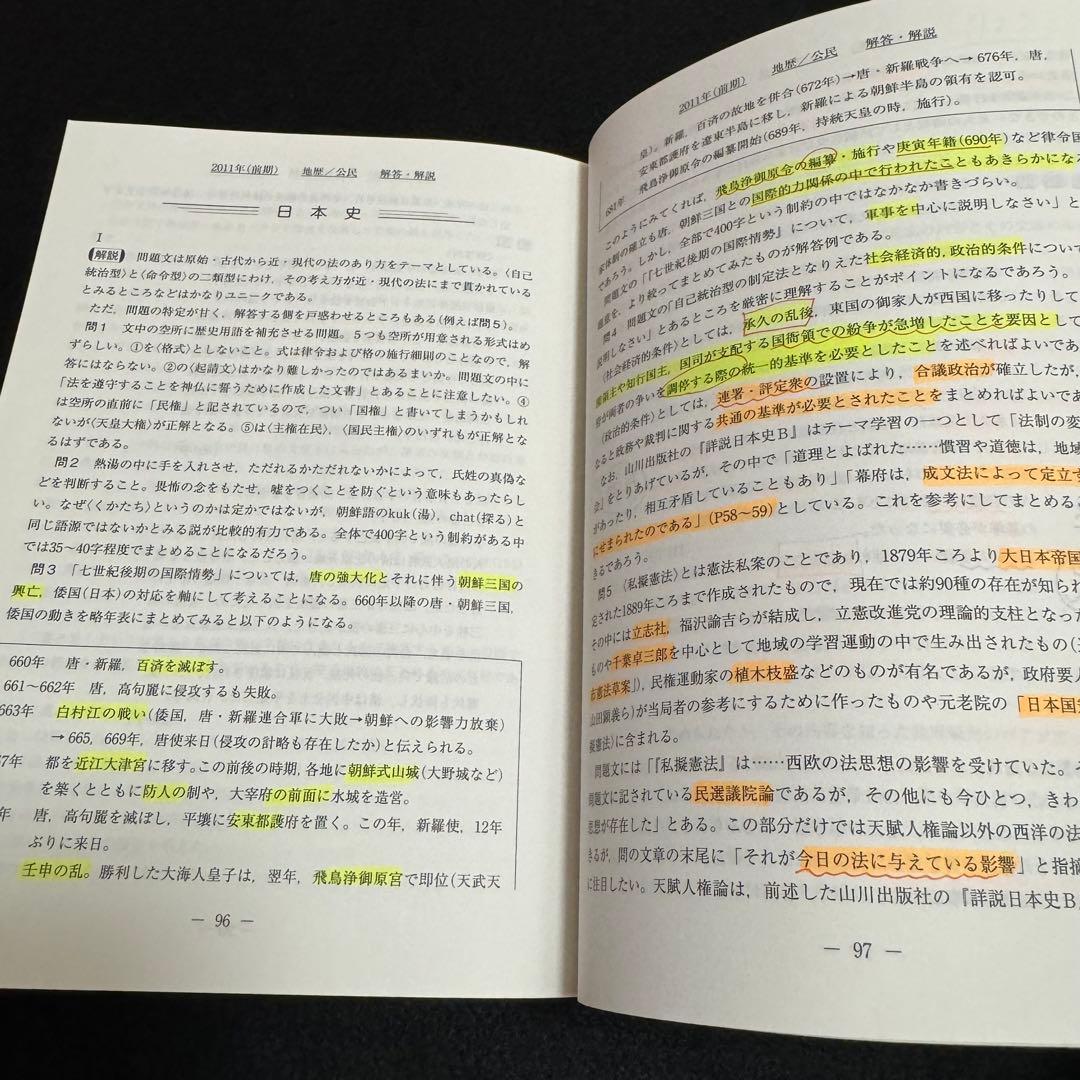 2011年(前期) 地歴/公民 解答・解説
日本史
I
解説 問題文は原始・古代から近・現代の法のあり方をテーマとしている。〈自己
統治型〉と〈命令型〉の二類型にわけ，その考え方が近・現代の法にまで貫かれている
とみるところなどはかなりユニークである。
ただ，問題の特定が甘く，解答する側を戸惑わせるところもある（例えば問5）。
問1 文中の空所に歴史用語を補充させる問題。5つも空所が用意される形式はめ
ずらしい。①を〈格式〉としないこと。式は律令および格の施行細則のことなので，解
答にはならない。②の〈起請文〉はかなり難しかったのではあるまいか。問題文の中に
「法を遵守することを神仏に誓うために作成した文書」とあることに注意したい。④
は空所の直前に「民権」と記されているので，つい「国権」と書いてしまうかもしれ
ないが〈天皇大権〉が正解となる。⑤は〈主権在民〉，〈国民主権〉のいずれもが正解とな
るはずである。
問2 熱湯の中に手を入れさせ，ただれるかただれないかによって，氏姓の真偽な
どを判断すること。畏怖の念をもたせ，嘘をつくことを防ぐという意味もあったらし
い。なぜ〈くかたち〉というのかは定かではないが，朝鮮語のkuk(湯)，chat(探る)と
同じ語源ではないかとみる説が比較的有力である。全体で400字という制約がある中
では35～40字程度でまとめることになるだろう。
問3 「七世紀後期の国際情勢」については，唐の強大化とそれに伴う朝鮮三国の
興亡，倭国(日本)の対応を軸にして考えることになる。660年以降の唐・朝鮮三国，
倭国の動きを略年表にまとめてみると以下のようになる。
660年 唐・新羅，百済を滅ぼす。
661～662年 唐，高句麗に侵攻するも失敗。
663年 白村江の戦い(倭国，唐・新羅連合軍に大敗→朝鮮への影響力放棄)
→665，669年，唐使来日(侵攻の計略も存在したか)と伝えられる。
67年 都を近江大津宮に移す。この前後の時期，各地に朝鮮式山城(大野城など)
を築くとともに防人の制や，大宰府の前面に水城を造営。
年 唐，高句麗を滅ぼし，平壌に安東都護府を置く。この年，新羅使，12年
ぶりに来日。
壬申の乱。勝利した大海人皇子は，翌年，飛鳥浄御原宮で即位(天武天
― 96 ―
2011年(前期) 地歴/公民 解答・解説
皇)。新羅，百済の故地を併合(672年)→唐・新羅戦争へ→676年，唐，
安東都護府を遼東半島に移し，新羅による朝鮮半島の領有を認可。
681年 飛鳥浄御原令の編纂開始(689年，持統天皇の時，施行)。
このようにみてくれば，飛鳥浄御原令の編纂・施行や庚寅年籍(690年)など律令国
家体制の確立も唐，朝鮮三国との国際的力関係の中で行われたこともあきらかになる
であろう。しかし，全部で400字という制約の中ではなかなか書きづらい。
問題文の「『七世紀後期の国際情勢』について，軍事を中心に説明しなさい」と
題意を，より絞ってまとめてみたものが解答例である。
問4 問題文の「自己統治型の制定法となりえた社会経済的，政治的条件について
説明しなさい」とあるところを厳密に理解することがポイントになるであろう。
〈社会経済的条件〉としては，承久の乱後，東国の御家人が西国に移ったりして
園領主や知行国主，国司が支配する国衙領での紛争が急増したことを要因として
府が両者の争いを調停する際の統一的基準を必要としたことを述べればよいであ
〈政治的条件〉としては，連署・評定衆の設置により，合議政治が確立したが，
なると政務や裁判に関する共通の基準が必要とされたことをまとめればよいであ
なお，山川出版社の『詳説日本史B』はテーマ学習の一つとして「法制の変
会」をとりあげているが，その中で「道理とよばれた……慣習や道徳は，地域
があったり，相互矛盾していることもあり」「幕府は，成文法によって定立す
にせまられたのである」(P58～59)としている。これを参考にしてまとめる
きるであろう。
問5 〈私擬憲法〉とは憲法私案のことであり，1879年ころより大日本帝国
定された1889年ころまで作成されたもので，現在では約90種の存在が知られ
その中には立志社，福沢諭吉らが結成し，立憲改進党の理論的支柱となった
ものや千葉卓三郎を中心として地域の学習運動の中で生み出されたもの(
市憲法草案』)，民権運動家の植木枝盛などのものが有名であるが，政府要人
山田顕義ら)が当局者の参考にするために作ったものや元老院の「日本国
擬憲法〉に含まれる。
問題文には「『私擬憲法』は……西欧の法思想の影響を受けていた。そ
問題文に記されている民選議院論であるが，その他にも今ひとつ，きわ
思想が存在した」とある。この部分だけでは天賦人権論以外の西洋の法
きるが，問の文章の末尾に「それが今日の法に与えている影響」と指摘
に注目したい。天賦人権論は，前述した山川出版社の『詳説日本史B』
― 97 ―